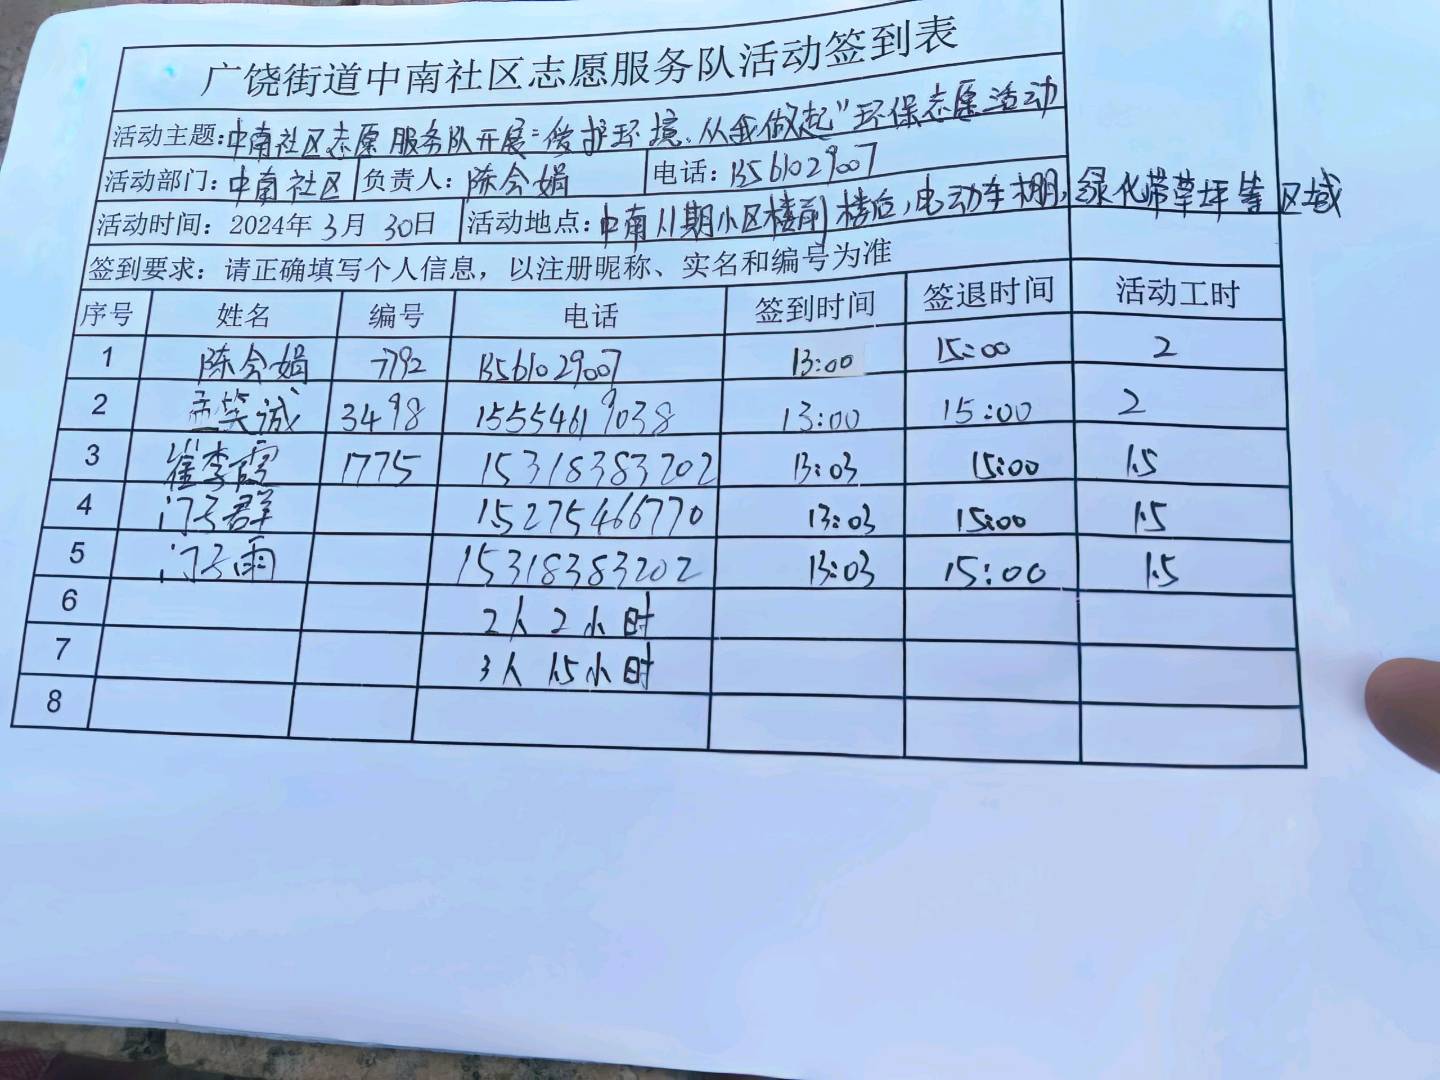 广饶街道中南社区志愿服务队活动签到表
活动主题:中南社区志愿服务队开展"爱护环境、从我做起"环保志愿活动
活动部门:中南社区 负责人:陈令娟 电话:13561029007
活动时间:2024年3月30日 活动地点:中南八期小区楼前楼后,电动车棚,绿化带草坪等区域
签到要求:请正确填写个人信息,以注册昵称、实名和编号为准
序号 姓名 编号 电话 签到时间 签退时间 活动工时
1 陈令娟 7792 13561029007 13:00 15:00 2
2 孟笑诚 3498 15554619038 13:00 15:00 2
3 崔李霞 1775 15318383202 13:03 15:00 1.5
4 门子群 15275466770 13:03 15:00 1.5
5 门子雨 15318383202 13:03 15:00 1.5
6 2人2小时
7 3人1.5小时
8